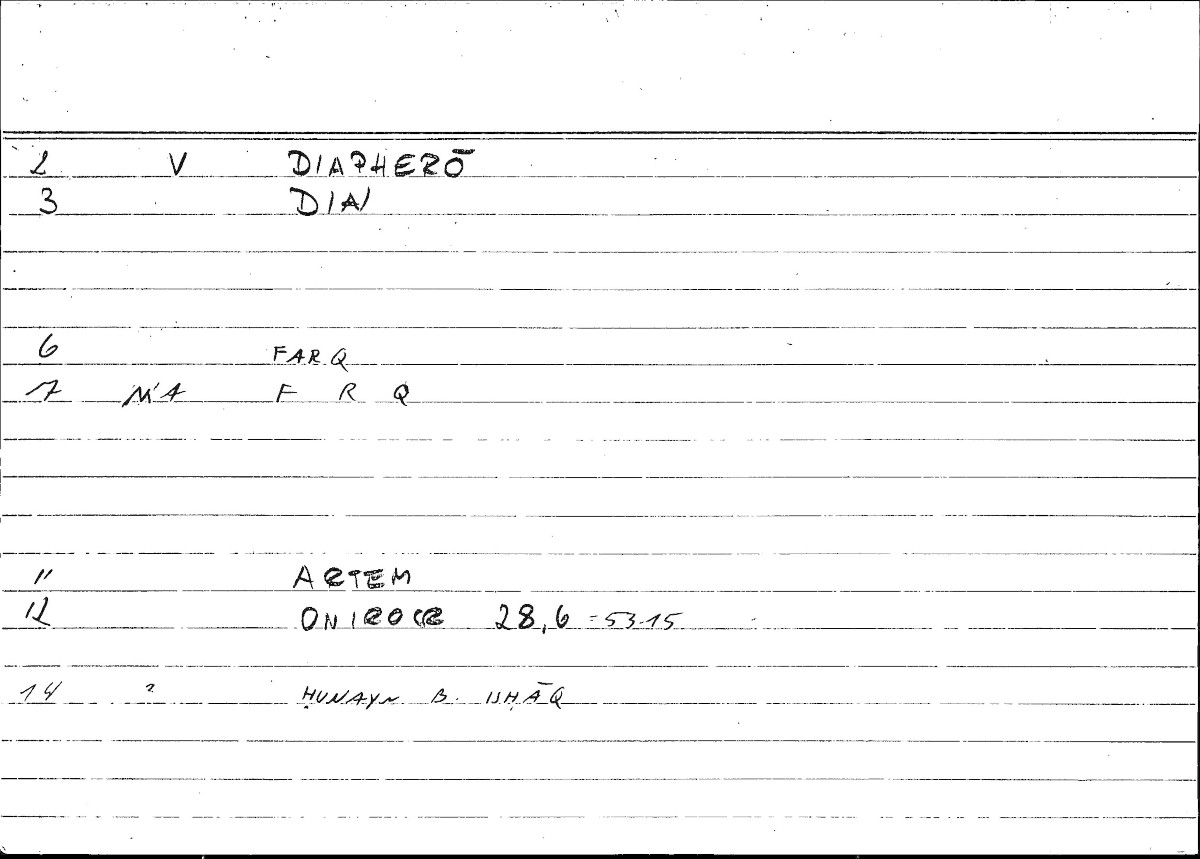 2 V DIAPHERŌ
3 DIA
6 FARQ
7 F R Q
11 ARTEM
12 ONIROCR 28,6 = 53.15
14 2 ḤUNAYN B. ISḤĀQ